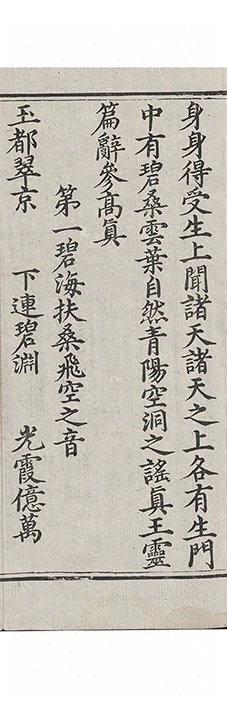 身身得受生上聞諸天諸天之上各有生門
中有碧桑雲葉自然青陽空洞之謠真王靈
篇辭參高真
第一碧海扶桑飛空之音
玉都翠京　下連碧淵　光霞億萬